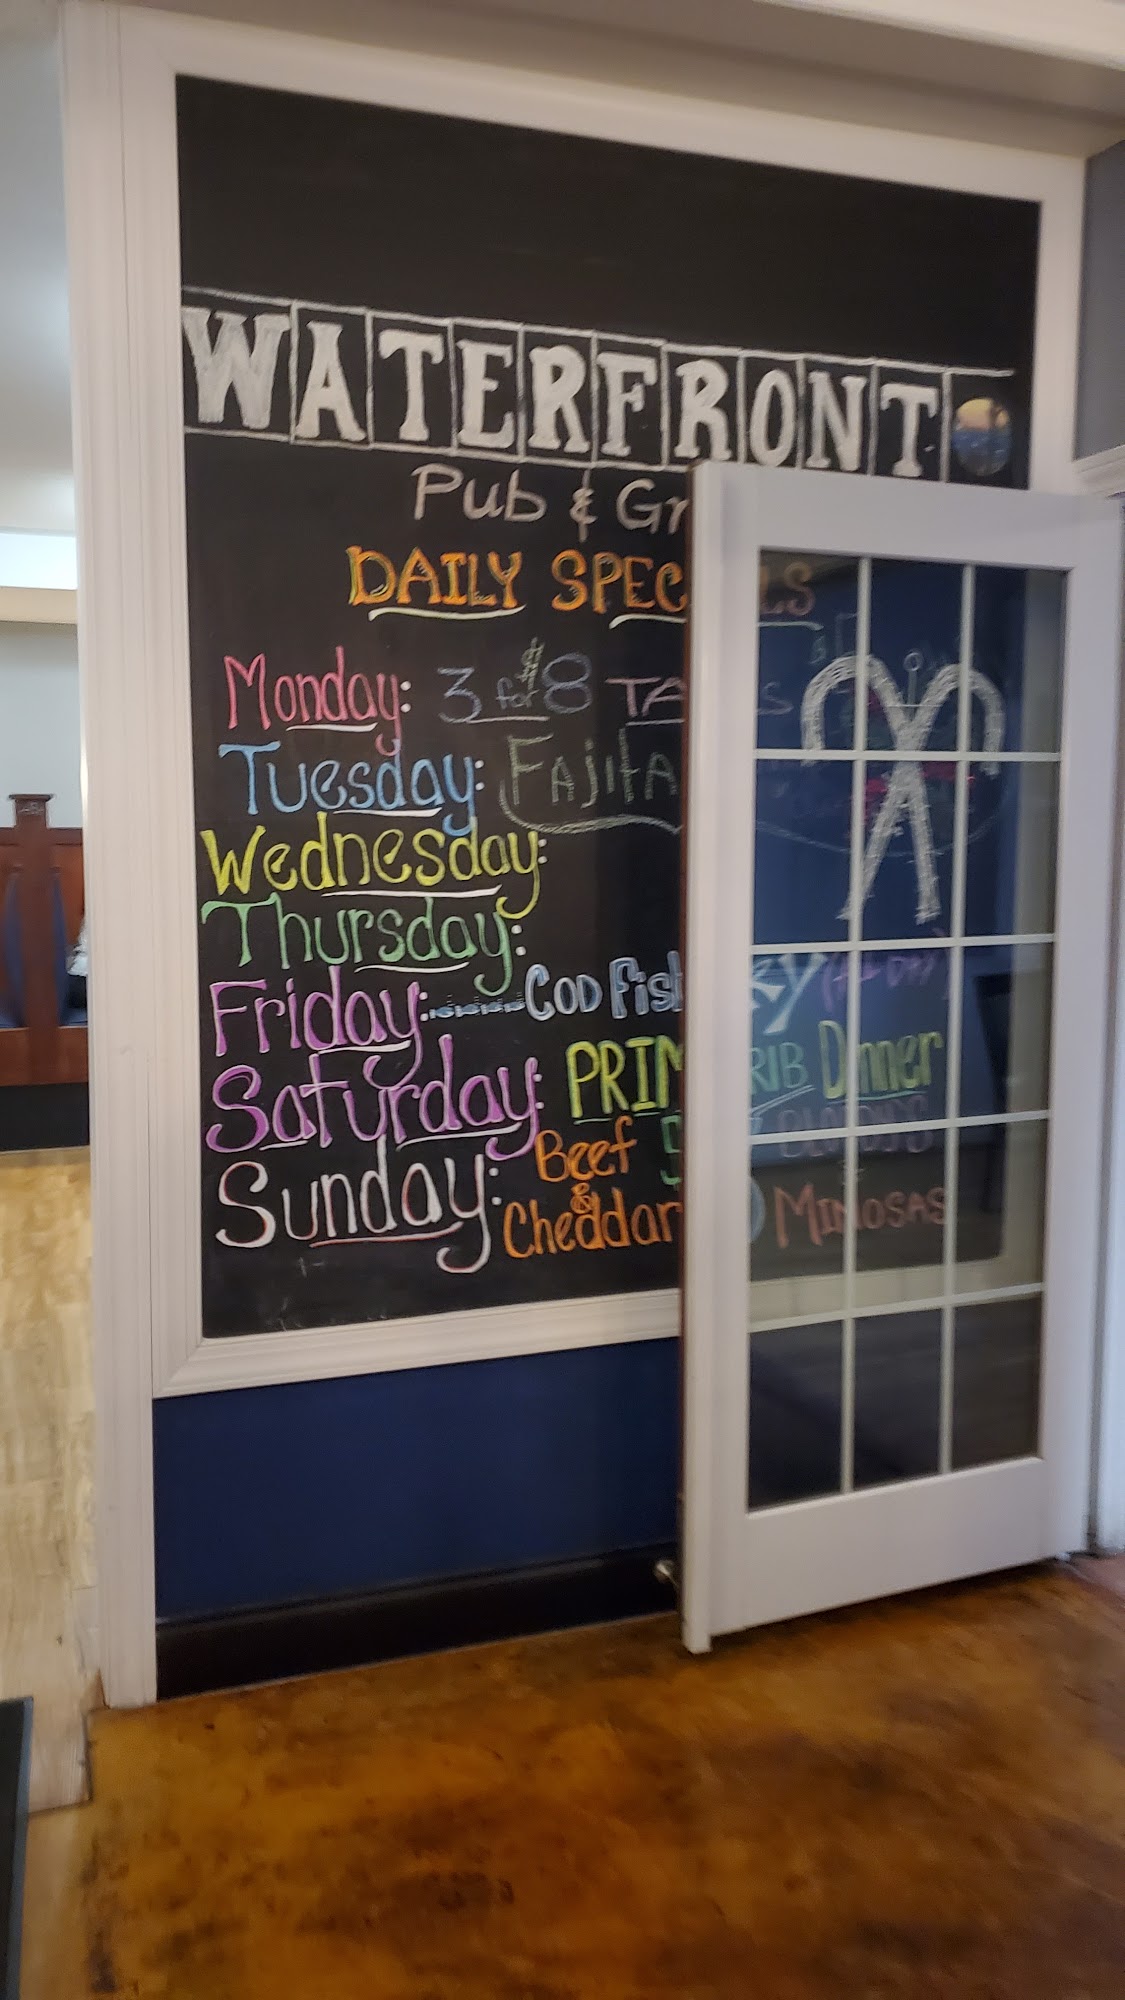 WATERFRONT
Pub & Gr
DAILY SPEC LS
Monday: 3 for $8 TA S
Tuesday: FAJITA
Wednesday:
Thursday:
Friday: COD Fish
Saturday: PRIM RIB Dinner
Sunday: Beef & Cheddar
MIMOSAS